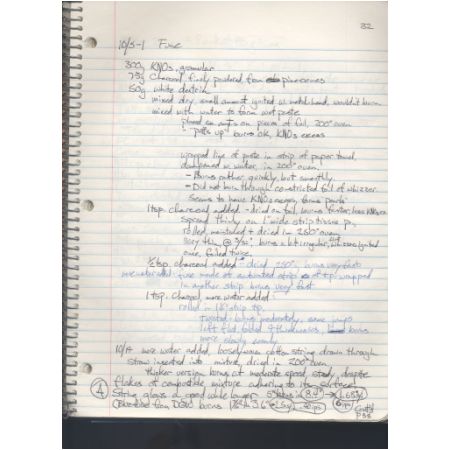 32
10/5-1 Fuse
300g KNO3, granular
75g Charcoal, finely powdered from pinecones
50g white dextrin
mixed dry, small amount ignited w. match head, wouldn't burn
mixed with water to form wet paste
on pieces of foil, 200° oven
"puffs up" burns OK, KNO3 excess
wrapped line of paste in strip of paper towel,
dampened w. water, in 200° oven.
- Burns rather quickly, but smoothly
- Did not burn through constricted foil of whizzer.
Seems to have KNO3 excess, some sparks
1 tsp. charcoal added - dried on foil, burns faster, less KNO3
spread thinly on 1" wide strip tissue p.
rolled, moistened + dried in 250° oven
very thin @ 3/32", burns a bit irregular, once ignited
once, failed twice
1/2 tsp. charcoal added - dried 250°, burns very fast
more water added fuse made of saturated strip of t.p. wrapped
in another strip burns very fast
1 tsp. charcoal, more water added
rolled in 1/8" strip t.p.
twisted - burns moderately, some jumps
left flat, folded thicknesses, burns
more slowly, evenly
10/ more water added, loosely woven cotton string drawn through
straw inserted into mixture, dried in 200° oven
thicker version burns at moderate speed, steady, despite
flakes of combustible mixture adhering to its surface
String glows a good while longer
burns
Cont'd
p38